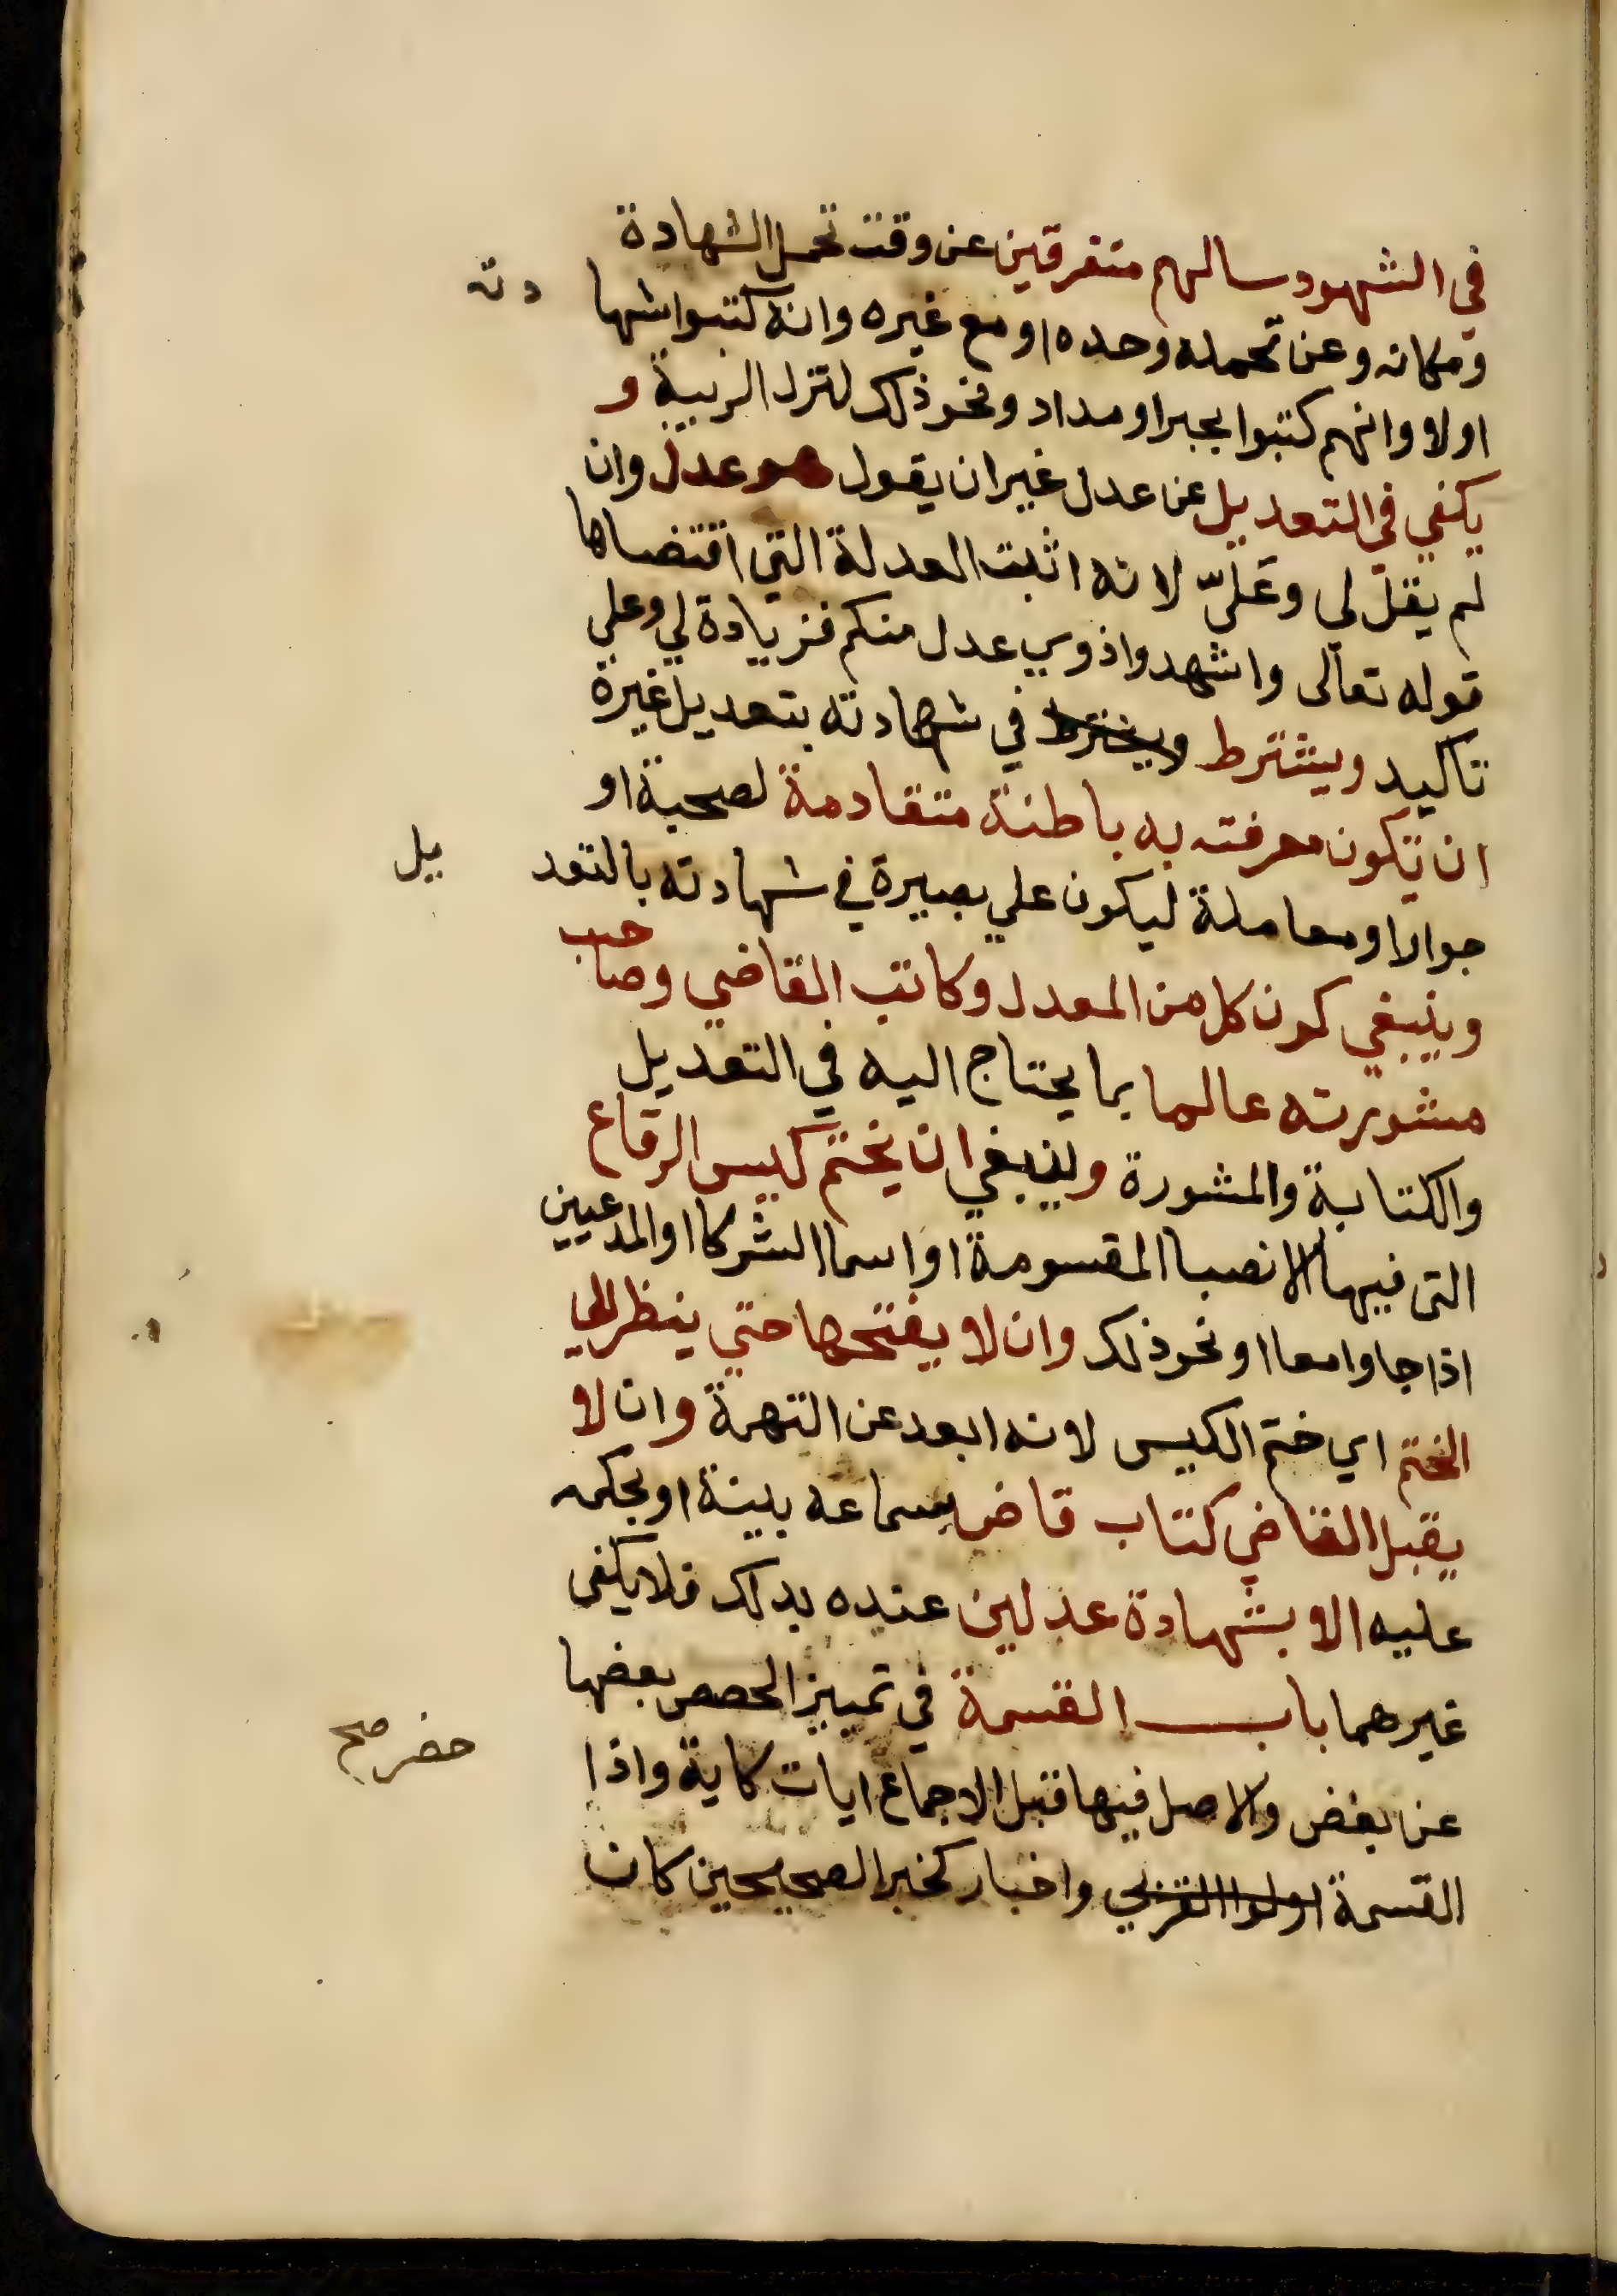 في الشهود وسالهم متفرقين عن وقت تحمل الشهادة
ومكانه وعن تحمله وحده او مع غيره وانه كتبوا شها دته
اولا وانهم كتبوا بحبر او مداد ونحو ذلك لتزل الريبة و
يكفي في التعديل عن عدل غير ان يقول هو عدل وان
لم يقل لي وعليّ لانه اثبت العدلة التي اقتضاها
قوله تعالى واشهدوا ذوي عدل منكم فزيادة لي وعلي
تاكيد ويشترط ويشترط في شهادته بتعديل غيرة
ان يكون معرفته به باطنة متقادمة لصحبة او
جوار او معاملة ليكون علي بصيرة في شهادته بالتعد يل
وينبغي كون كل من المعدل وكاتب القاضي وصاحب
مشورته عالما بما يحتاج اليه في التعديل
والكتابة والمشورة وينبغي ان يختم كيس الرقاع
التي فيها الانصبا المقسومة او اسما الشركا او المدعيين
اذا جاوا معا او نحو ذلك وان لا يفتحها حتي ينظر الي
الختم اي ختم الكيس لانه ابعد عن التهمة وان لا
يقبل القاضي كتاب قاض بسماعه بينة او بحكمه
عليه الا بشهادة عدلين عنده بدلك فلا يكفى
غيرهما باب القسمة في تمييز الحصص بعضها
عن بعض والاصل فيها قبل الاجماع ايات كاية واذا حضر صح
القسمة اولوا القربي واخبار كخبر الصحيحين كان